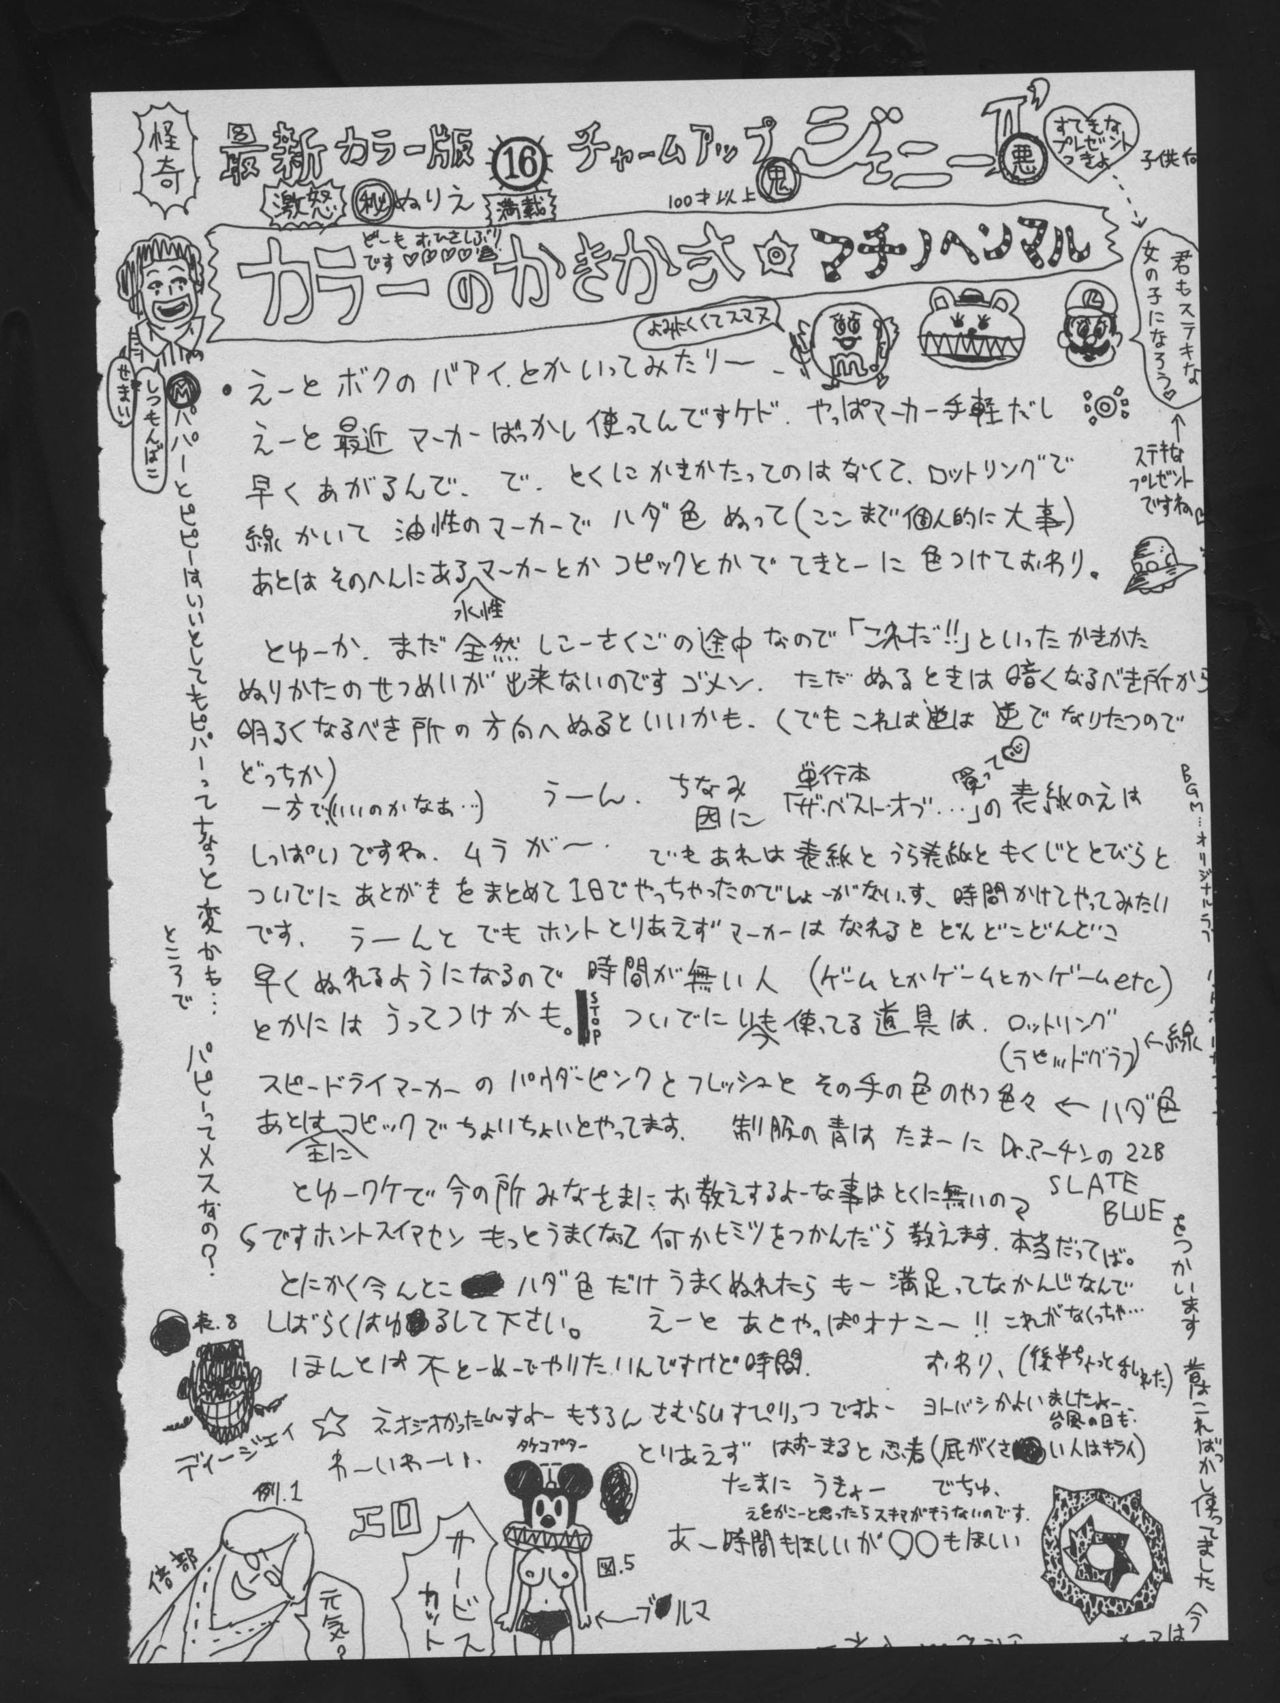 怪奇
最新カラー版 16 チャームアップ ジェニー
激怒 秘 ぬりえ 満載
100才以上 鬼
悪
すてきな
プレゼント
つきよ
子供
どーもおひさしぶり
です♡♡♡♡
カラーのかきかた マチノヘンマル
よみにくくてスマヌ
君もステキな
女の子になろう♡
ステキな
プレゼント
ですね
せまい
しつもんばこ
・えーとボクのバアイ.とかいってみたりー
えーと最近マーカーばっかし使ってんですケド.やっぱマーカー手軽だし
早くあがるんで、で、とくにかきかたってのはなくて、ロットリングで
線かいて油性のマーカーでハダ色ぬって(ここまで個人的に大事)
あとはそのへんにあるマーカーとかコピックとかでてきとーに色つけておわり。
水性
とゆーか、まだ全然しこーさくごの途中なので「これだ!!」といったかきかた
ぬりかたのせつめいが出来ないのですゴメン、ただぬるときは暗くなるべき所から
明るくなるべき所の方向へぬるといいかも、(でもこれは逆は逆でなりたつので
どっちか)
一方で(いいのかなあ…)
うーん、ちなみ
因に
単行本
「ザ・ベストオブ…」の表紙のえは
買って
しっぱいですね、ムラが〜.でもあれは表紙とうら表紙ともくじととびらと
ついでにあとがきをまとめて1日でやっちゃったのでしょーがないす、時間かけてやってみたい
です、うーんとでもホントとりあえずマーカーはなれるとどんどこどんどこ
早くぬれるようになるので時間が無い人(ゲームとかゲームとかゲームetc)
とかにはうってつけかも。
STOP
ついでに今使ってる道具は、ロットリング
(ラピッドグラフ)←線
スピードライマーカーのパウダーピンクとフレッシュとその手の色のやつ色々←ハダ色
あとはコピックでちょいちょいとやってます、制服の青はたまーにDr.マーチンの22B
主に
SLATE
BLUE
をつかいます
昔はこればっかし使ってました
とゆーワケで今の所みなさまにお教えするよーな事はとくに無いのマ
Sですホントスイマセンもっとうまくなって何かヒミツをつかんだら教えます、本当だってば。
とにかく今んとこハダ色だけうまくぬれたらもー満足ってなかんじなんで
しばらくはゆるして下さい。えーとあとやっぱオナニー!!これがなくっちゃ…
ほんとは
でやりたいんですけど時間.
おわり、(後半ちょっと乱れた)
ディージェイ
☆ネオジオかったんすよーもちろんさむらいすぴりっつですよー
わーいわーい、
ヨドバシかよいましたよー、
台風の日も、
とりあえずはおーまると忍者(屁がくさい人はキライ)
たまにうきょーでちゅ、
えをかこーと思ったらスキマがもうないのです、
あ〜時間もほしいが○○もほしい
Ⓜパパーとピピーはいいとしてもピパーってちょっと変かも…
ところで
パピーってメスなの?
BGM…オリジナルラブ
タケコプター
図.5
←ブルマ
エロ
サービス
カット
例.1
元気?